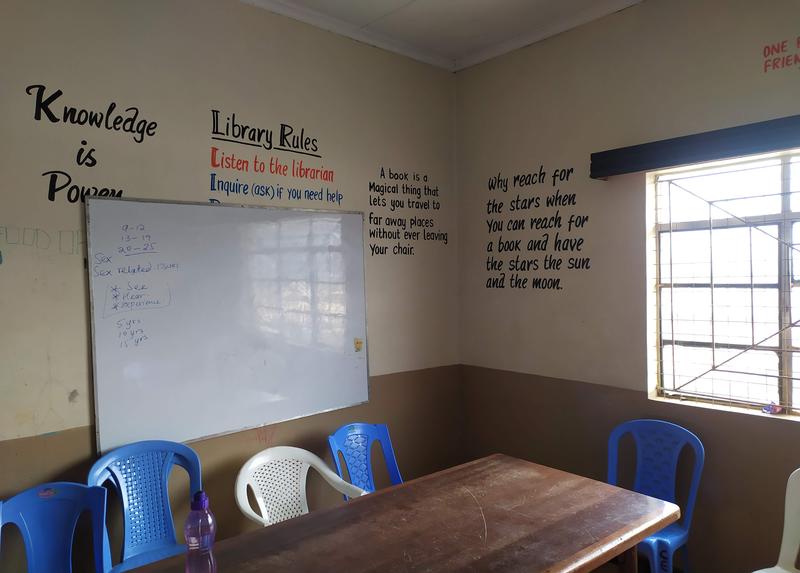 Knowledge
is
Power
Library Rules
Listen to the librarian
Inquire (ask) if you need help
A book is a
Magical thing that
lets you travel to
far away places
without ever leaving
your chair.
Why reach for
the stars when
you can reach for
a book and have
the stars the sun
and the moon.
ONE
FRIEN
9-12
13-19
20-25
Sex
Sex related issues
* See
* Hear
* experience
5 yrs
10 yrs
15 yrs